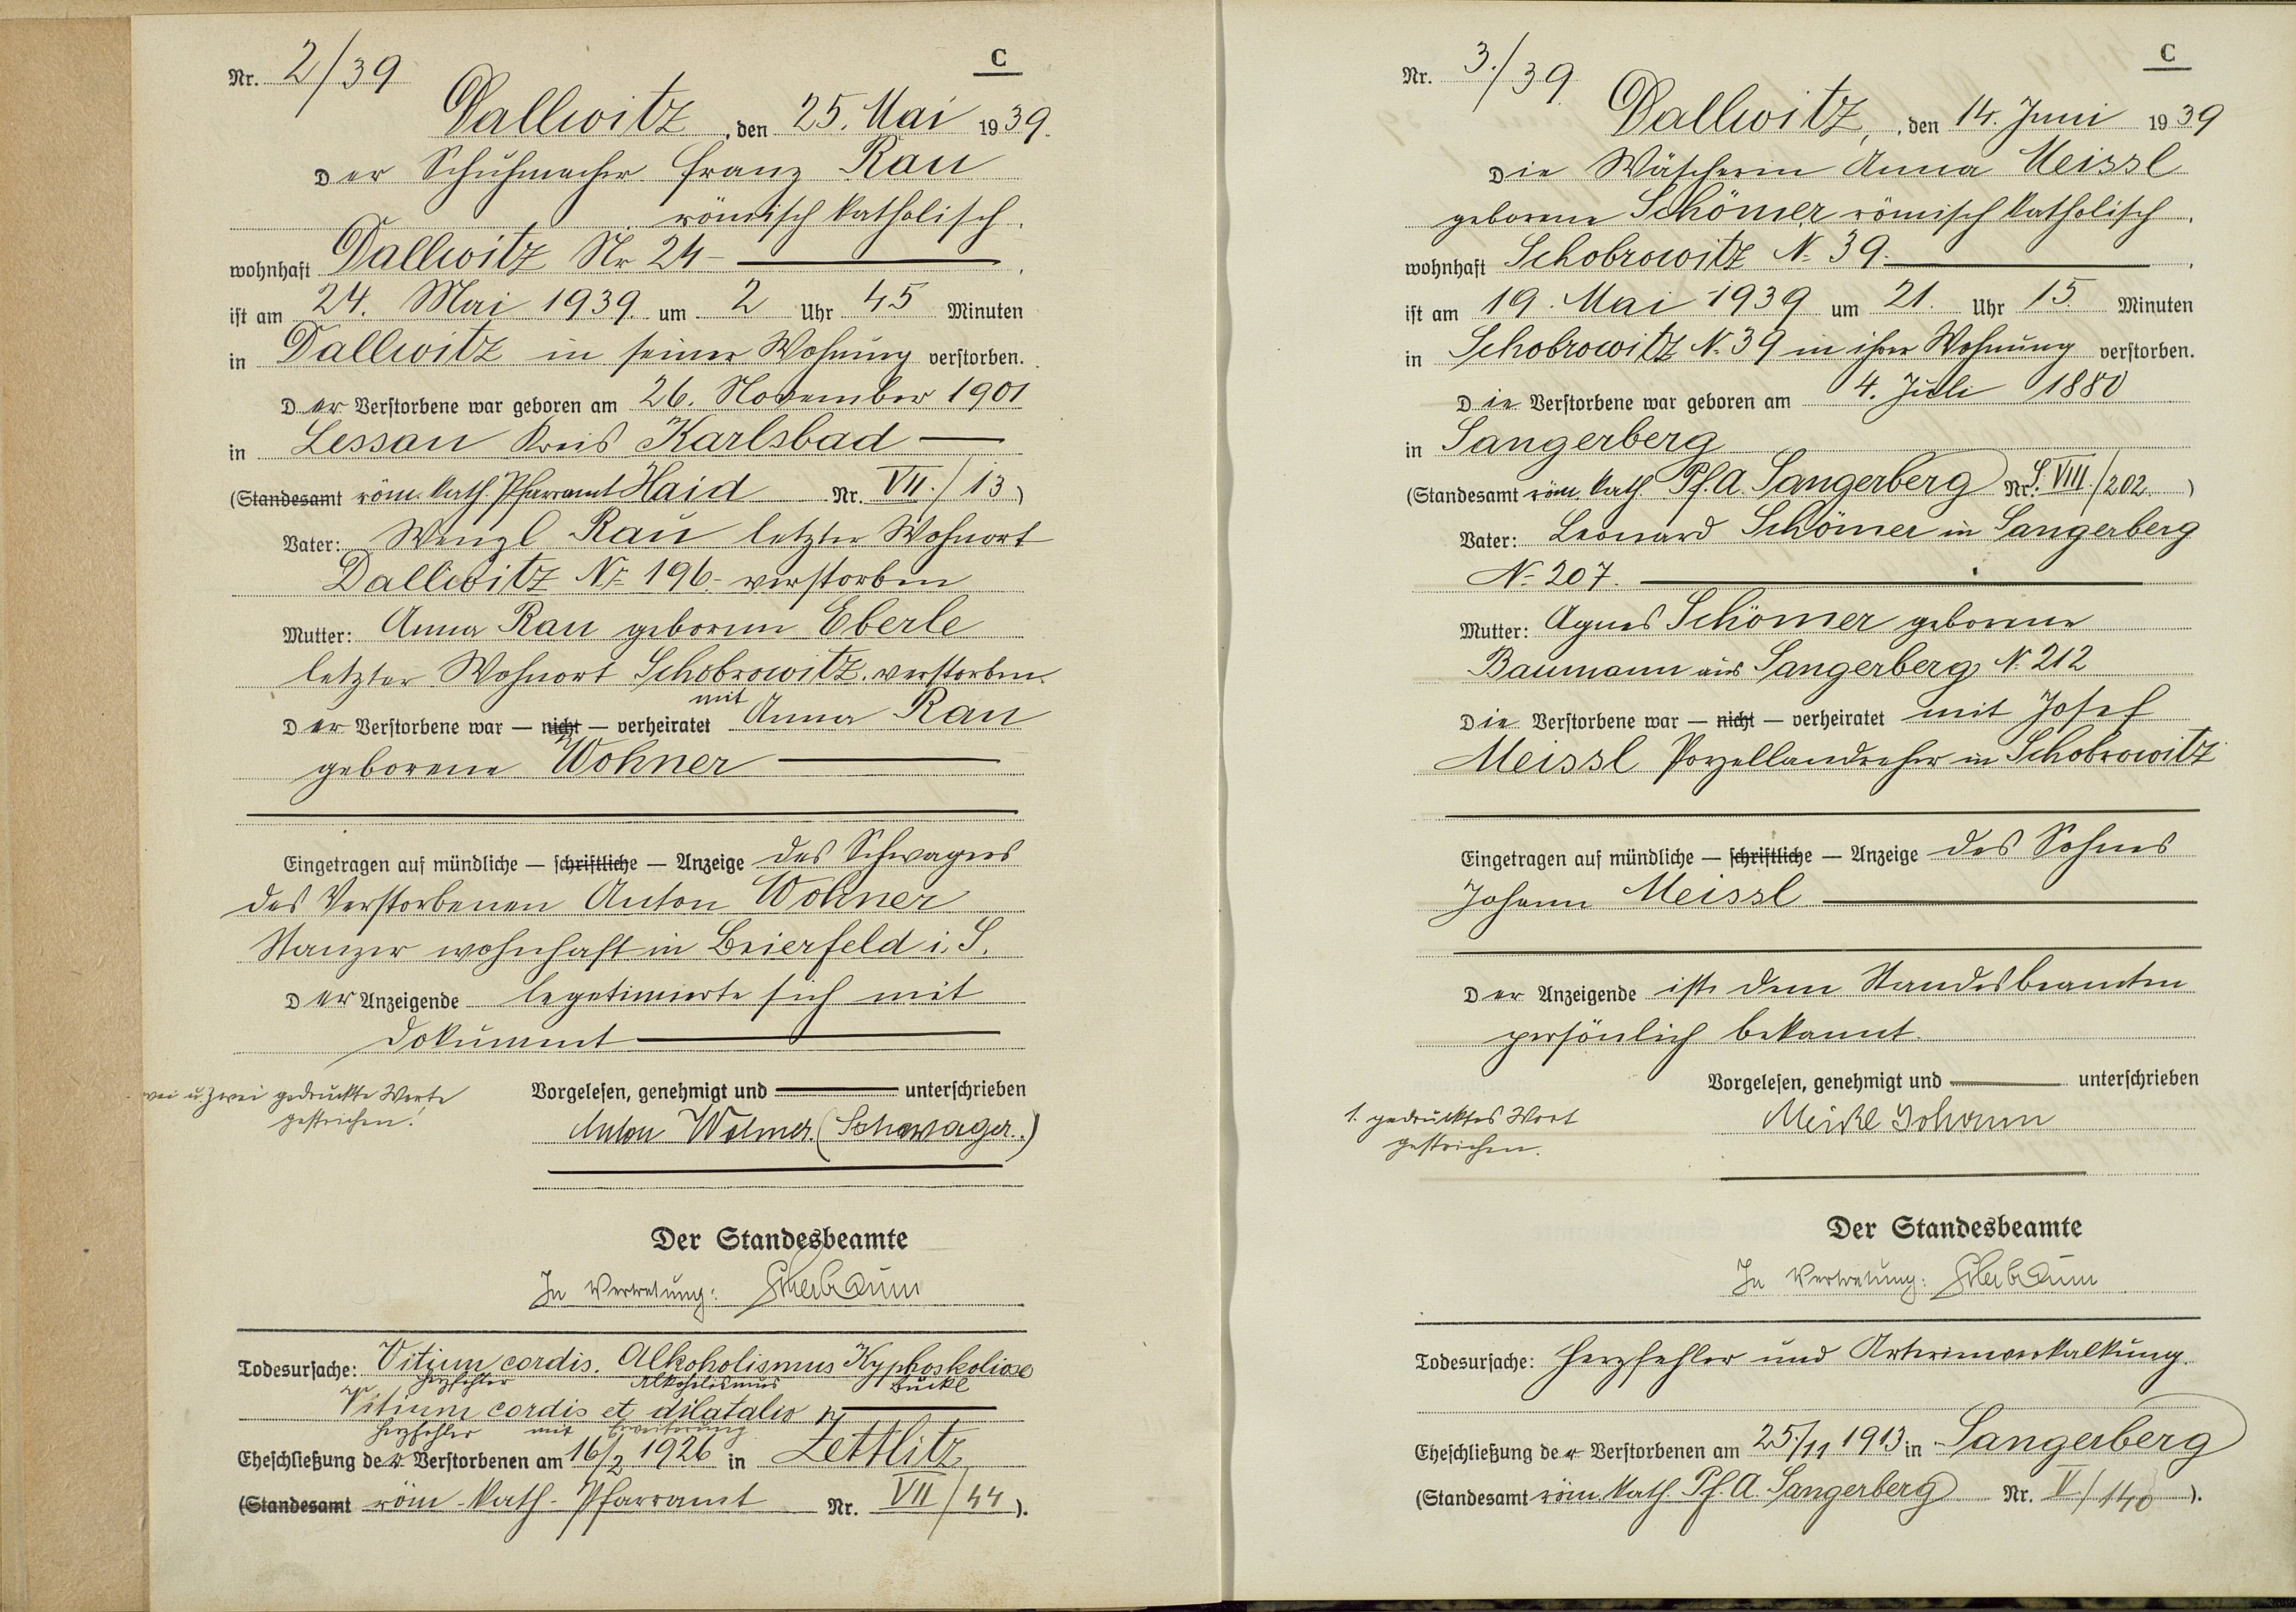 C
Nr. 2/39
Dallwitz, den 25. Mai 1939.
Der Schuhmacher Franz Rau
römisch katholisch.
wohnhaft Dallwitz Nr 24
ist am 24. Mai 1939 um 2 Uhr 45 Minuten
in Dallwitz in seiner Wohnung verstorben.
Der Verstorbene war geboren am 26. November 1901
in Lessau Kreis Karlsbad
(Standesamt röm. kath. Pfarramt Haid Nr. VII./13)
Vater: Wenzl Rau letzter Wohnort
Dallwitz Nr 196 - verstorben
Mutter: Anna Rau geborene Eberle
letzter Wohnort Schobrowitz. verstorben.
Der Verstorbene war — nicht — verheiratet mit Anna Rau
geborene Wohner
Eingetragen auf mündliche — schriftliche — Anzeige des Schwagers
des Verstorbenen Anton Wohner
Stanzer wohnhaft in Beierfeld i. S.
Der Anzeigende legetimierte sich mit
Dokument
Vorgelesen, genehmigt und unterschrieben
u. zwei gedruckte Worte
gestrichen!
Anton Wohner (Schwager.)
Der Standesbeamte
In Vertretung:
Todesursache: Vitium cordis. Alkoholismus Kyphoskoliose
Herzfehler Alkoholismus Buckl
Vitium cordis et dilatatio
Herzfehler mit Erweiterung
Eheschließung der Verstorbenen am 16/2 1926 in Zettlitz
(Standesamt röm.-kath.-Pfarramt Nr. VII/44).
C
Nr. 3./39.
Dallwitz, den 14. Juni 1939
Die Wäscherin Anna Meissl
geborene Schömer römisch katholisch.
wohnhaft Schobrowitz N. 39.
ist am 19. Mai 1939 um 21. Uhr 15. Minuten
in Schobrowitz N. 39 in ihrer Wohnung verstorben.
Die Verstorbene war geboren am 4. Juli 1880
in Sangerberg
(Standesamt röm. kath. Pf. A. Sangerberg Nr. VIII./202.)
Vater: Leonard Schömer in Sangerberg
N. 207.
Mutter: Agnes Schömer geborene
Baumann aus Sangerberg N. 212
Die Verstorbene war — nicht — verheiratet mit Josef
Meissl Porzellandreher in Schobrowitz
Eingetragen auf mündliche — schriftliche — Anzeige des Sohnes
Johann Meissl
Der Anzeigende ist dem Standesbeamten
persönlich bekannt.
Vorgelesen, genehmigt und unterschrieben
1. gedrucktes Wort
gestrichen.
Meißl Johann
Der Standesbeamte
In Vertretung:
Todesursache: Herzfehler und Arterienverkalkung.
Eheschließung der Verstorbenen am 25./11 1913 in Sangerberg
(Standesamt röm. kath. Pf. A. Sangerberg Nr. V./140).